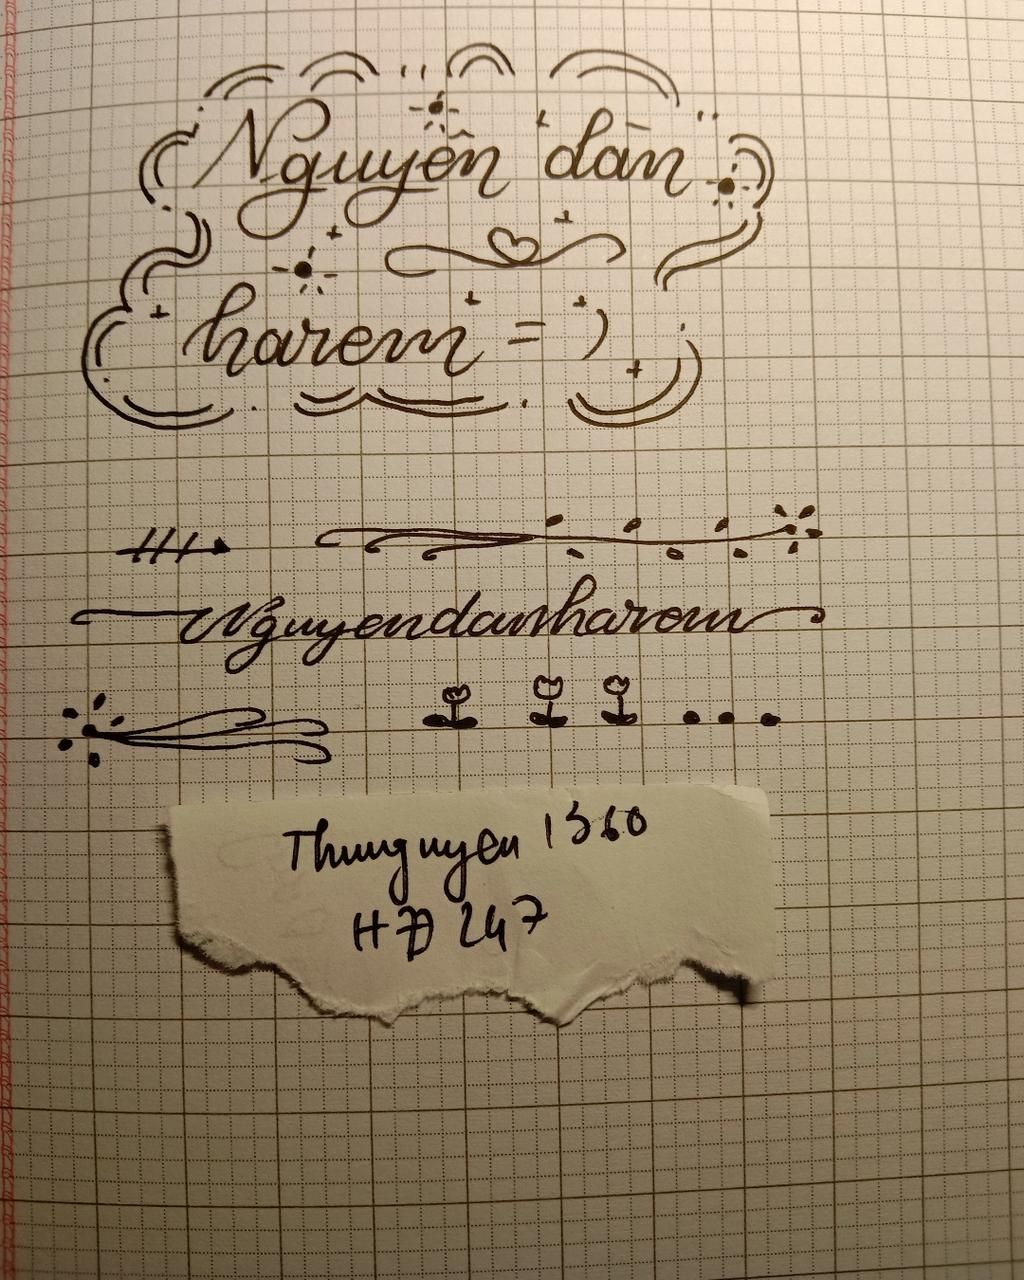 Nguyên dàn
harem =)
Nguyendanharem
Thunguyen 1360
HĐ 247